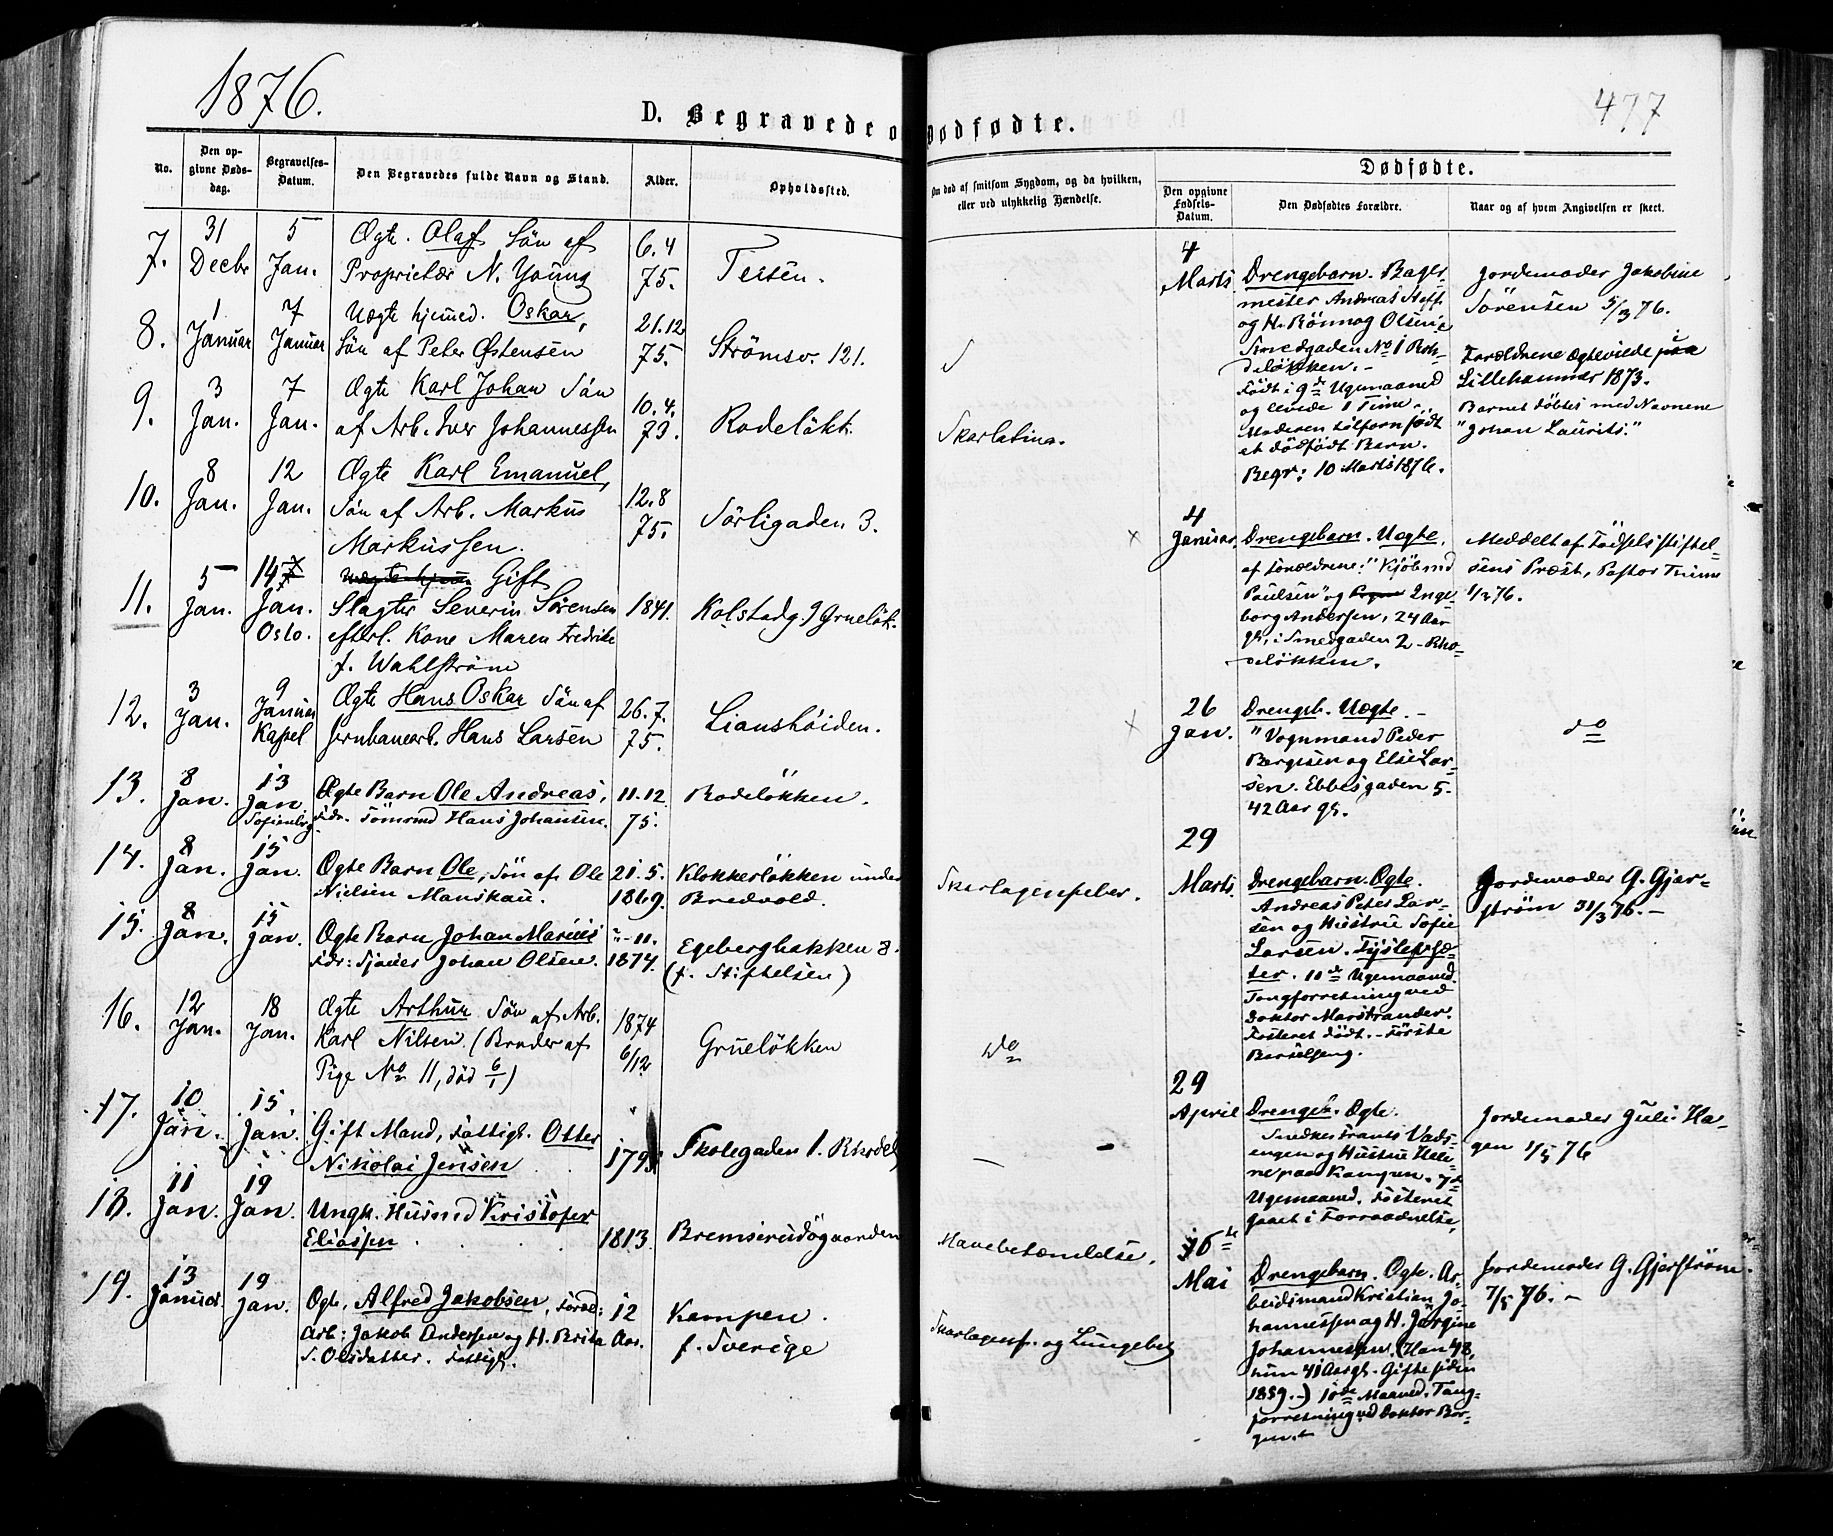 1876.
477
D. Begravede o
Dødfødte.
No.
Den opgivne Dødsdag.
Begravelses-Datum.
Den Begravedes fulde Navn og Stand.
Alder.
Opholdssted.
Om død af smitsom Sygdom, og da hvilken,
eller ved ulykkelig Hændelse.
Dødfødte.
Den opgivne Fødsels-Datum.
Den Dødfødtes Forældre.
Naar og af hvem Angivelsen er skeet.
7. 31 Decbr 5 Jan. Ægte. Olaf Søn af 6.4
Proprietær N. Young 75. Teisen.
8. 1 Januar 7 Januar Uægte hjemmed. Oskar, 21.12
Søn af Peter Østensen 75. Strömsv. 121.
9. 3 Jan. 7 Jan. Ægte Karl Johan Søn 10.4.
af Arb. Iver Johannessen 73. Rodeløkk. Skarlatina.
10. 8 Jan. 12 Jan. Ægte Karl Emanuel, 12.8
Søn af Arb. Markus 75. Sörligaden 3.
Markussen.
11. 5 Jan. 14 Jan. Oslo. Gift
Slagter Severin Sørensen 1841. Kolstadg. 9 Grueløk.
efterl. Kone Maren Fredrike
f. Wahlstrøm
12. 3 Jan. 9 Januar Kapel Ægte Hans Oskar Søn af 26.7.
Jernbanearb. Hans Larsen 75. Lianshöiden.
13. 8 Jan. 13 Jan. Sofienbrg. Ægte Barn Ole Andreas, 11.12. Rodeløkken.
Fdr. Tömrmd Hans Johansen. 75.
14. 8 Jan. 15 Jan. Ægte Barn Ole, Søn af Ole 21.5. Klokkerløkken under Skarlagensfeber.
Nielsen Manskau. 1869. Bredvold.
15. 8 Jan. 15 Jan. Ægte Barn Johan Marius "-11. Egeberghakken 8.
Fdr: Sjauer Johan Olsen. 1874. (f. Stiftelsen)
16. 12 Jan. 18 Jan. Ægte Arthur Søn af Arb. 1874
Karl Nilsen. (Broder af 6/12 Grueløkken do
Pige No 11, död 6/1)
17. 10 Jan. 15 Jan. Gift Mand, Fattigl. Otter 179 Skolegaden 1. Rhodel
Nikolai Jensen —
18. 11 Jan. 19 Jan. Ungk. Husmd Kristofer
Eliassen 1813. Bremserudgaarden Mavebetændelse.
19. 13 Januar. 19 Jan. Ægte. Alfred Jakobsen, Foræl: 12 Kampen.
Arb: Jakob Andersen og H. Brita Aar. f. Sverige Skarlagensf. og Lungebet
S. Olsdatter. Fattigl.
4 Marts
Drengebarn. Bager-
mester Andreas Hoff
og H. Rönnog Olsen
Smedgaden No 1 Rho-
deløkken. -
Født i 9de Ugemaaned
og levede 1 Time.
Moderen tilforn født
et dødfødt Barn.
Begr: 10 Marts 1876.
Jordemoder Jakobine
Sörensen 5/3 76.
Forældrene Ægteviede paa
Lillehammer 1873.
Barnet døbtes med Navnene
"Johan Laurits."
4 Januar.
Drengebarn. Uægte.
af Forældrene: "Kjöbmd
Paulsen" og Inge-
borg Andersen, 24 Aar
gl., i Smedgaden 2 - Rho-
deløkken.
Meddelt af Födselsstiftel-
sens Præst, Pastor Thime
1/2 76.
26 Jan.
Drengeb. Uægte. -
"Vognmand Peder
Borgesen og Elise Lar-
sen. Ebbesgaden 5.
42 Aar gl.
do
29 Marts
Drengebarn. Ægte.
Andreas Peter Lar-
sen og Hustru Sofie
Larsen. Tyslefsæ-
ter. 10de Ugemaaned.
Tangforretning ved
Doktor Marstrander.
Fosteret Födt. - Förste
Barselseng.
Jordemoder G. Gjer-
strøm 31/3 76. -
29 April
Drengeb. Ægte.
Snedker Frants Vads-
engen og Hustru Heli-
ne paa Kampen. 7de
Ugemaaned. Fosteret
gaaet i Forraadnelse.
Jordemoder Juli Ha-
gen 1/5 76
16de Mai
Drengebarn. Ægte. Ar-
beidsmand Kristian Jo-
hannessen og H. Jörgine
Johannessen. (Han 48,
hun 41 Aar gl. Gifte siden
1859. -) 10de Maaned. Tang-
forretning ved Doktor Bor-
gen.
Jordemoder G. Gjerström.
7/5 76. -